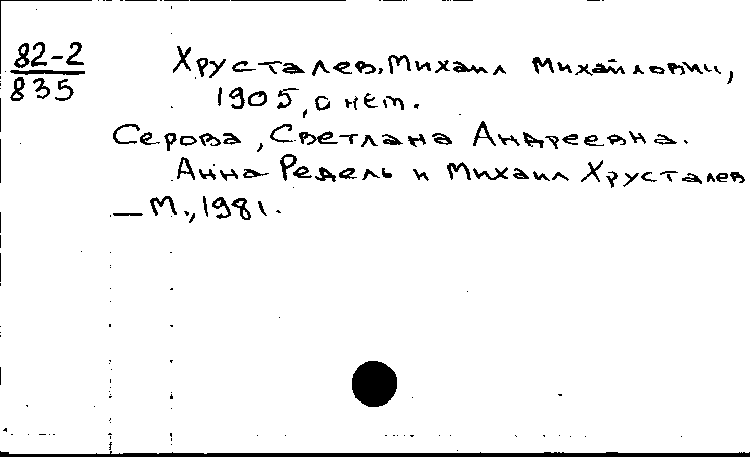 82-2
835
Хрусталев, Михаил Михайлович,
1905, о нем.
Серова, Светлана Андреевна.
Анна Редель и Михаил Хрусталев
— М., 1981.